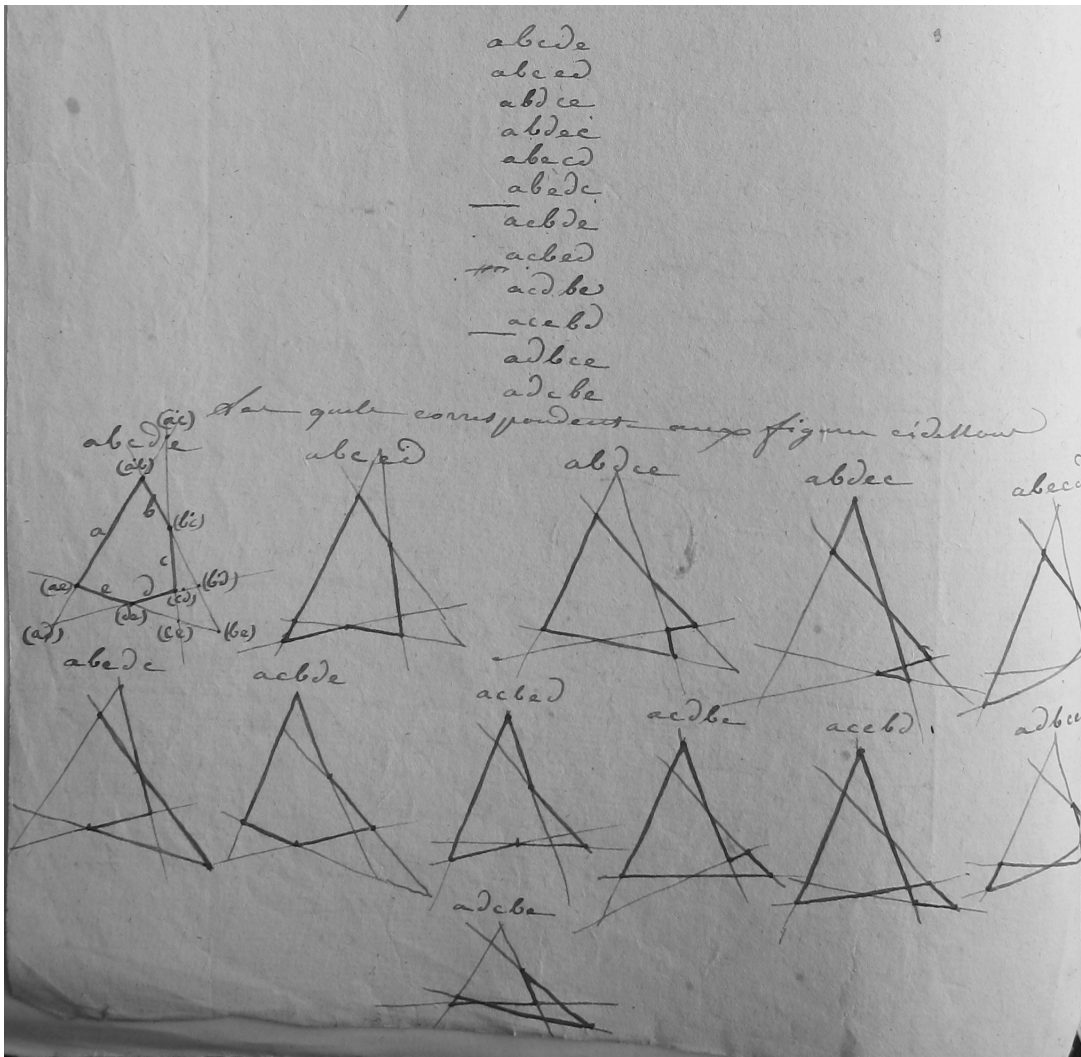 abcde
abced
abdce
abdec
abecd
abedc
acbde
acbed
acdbe
acebd
adbce
adcbe
correspondent aux figures
abcde
(ac)
(ab)
a
b
(bc)
c
(ae)
e
d
(cd)
(bd)
(de)
(ad)
(ce)
(be)
abced
abdce
abdec
abecd
abedc
acbde
acbed
acdbe
acebd
adbce
adcbe